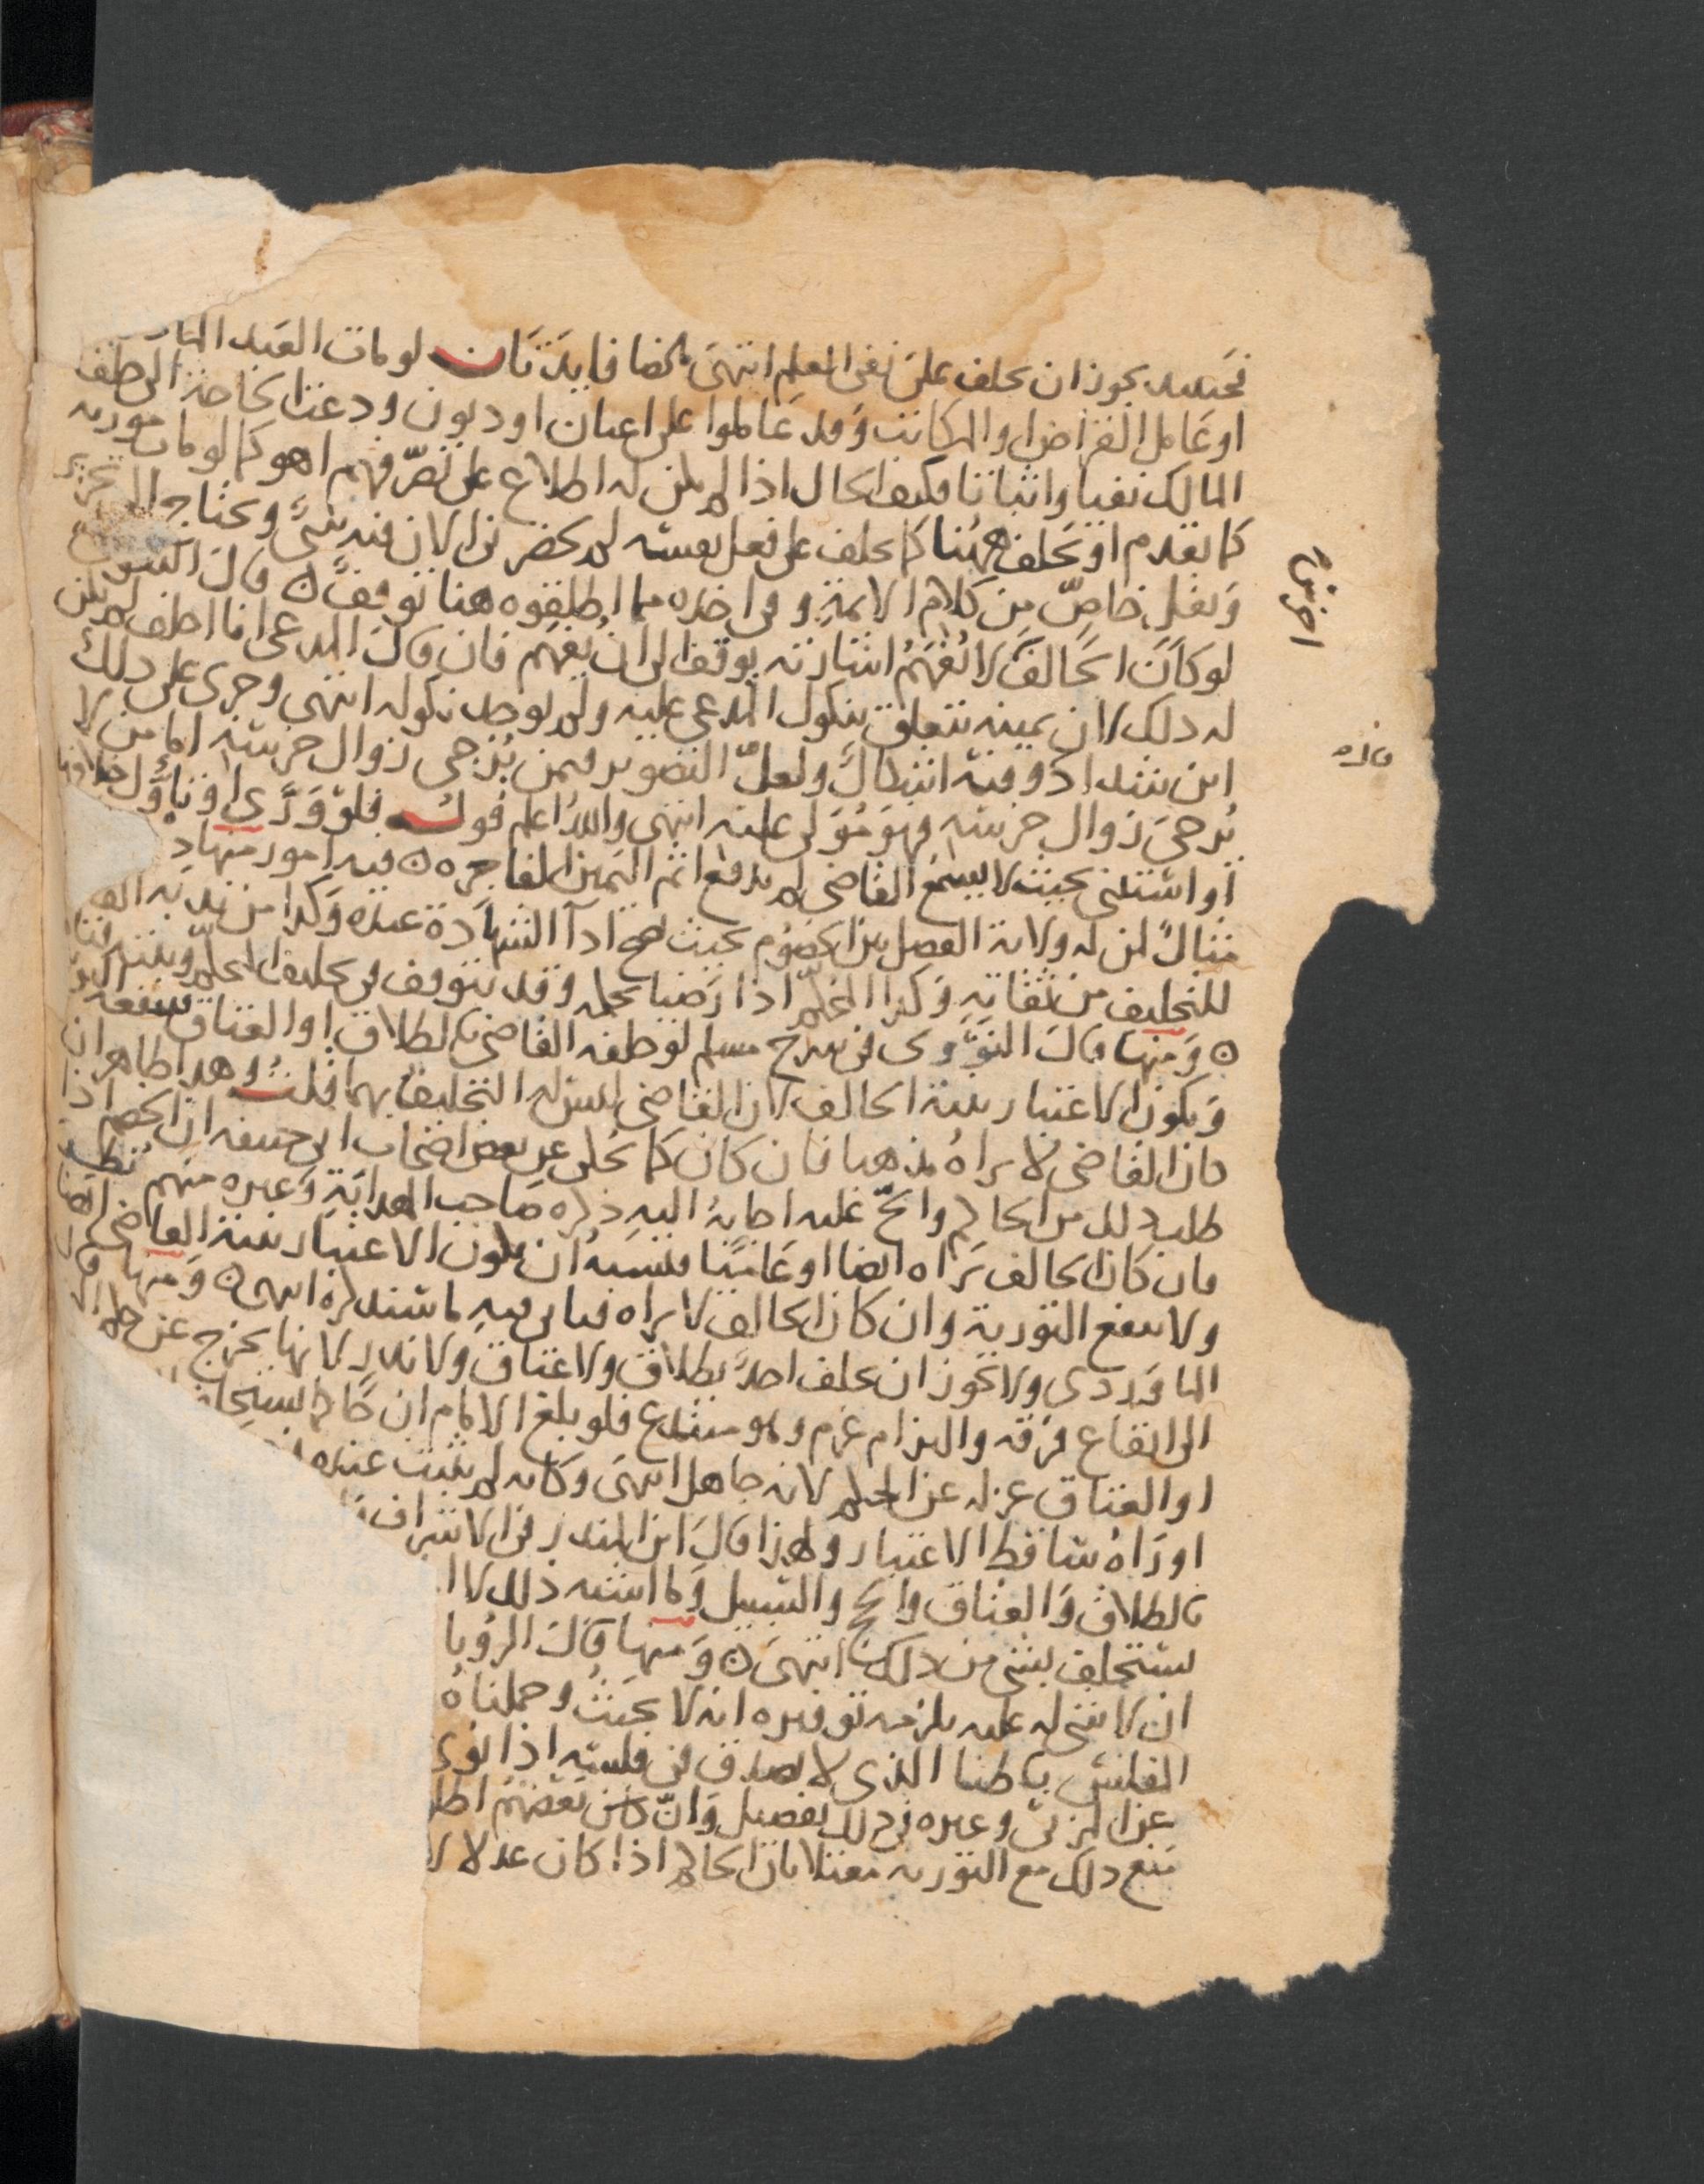 فحينئذ يجوز ان يحلف على نفي العلم انتهى ملخصا فايدتان لو مات العبد الما
او عامل القراض او المكاتب وقد عاملوا على اعيان او ديون ودعتنا الحاجة الى حلف
المالك نفيا واثباتا فكيف الحال اذا لم يكن له اطلاع على تصرفهم اهو كما لو مات مورثه
كما تقدم او يحلف ههنا كما يحلف على فعل نفسه لم يحضرني الان فيه شيء ويحتاج الى تحرير
ونقل خاص من كلام الايمة وفي اخذه مما اطلقوه هنا توقف ه قال
لو كان الحالف لا تفهم اشارته يوقف الى ان يفهم فان قال المدعي انا احلف لم يكن
له ذلك لان يمينه تتعلق بنكول المدعى عليه ولم يوجد نكوله انتهى وجرى على ذلك
ابن شداد وفيه اشكال ولعل التصوير فيمن يرجى زوال خرسه اما من لا
يرجى زوال خرسه فهو مولى عليه انتهى والله اعلم قوله فلو ورى او تاول خلافها
او استثنى بحيث لا يسمع القاضي لم يدفع اثم اليمين الفاجرة ه فيه امور منها
مثال لمن له ولاية الفصل بين الخصوم بحيث صح ادآ الشهادة عنده وكذا من ندبه
للتحليف من ثقاته وكذا المحكم اذا رضيا بحكمه وقد يتوقف في تحليف المحكم
ه ومنها قال النووي في شرح مسلم لو حلفه القاضي بالطلاق او العتاق تنفعه
ويكون الاعتبار بنية الحالف لان القاضي ليس له التحليف بهما قلت وهذا ظاهر ان
كان القاضي لا يراه مذهبا فان كان كما يحكى عن بعض اصحاب ابي حنيفه ان الخصم اذا
طلب ذلك من الحاكم والح عليه اجابه اليه ذكره صاحب الهداية وغيره منهم
فان كان الحالف يراه ايضا او عاميا فيشبه ان يكون الاعتبار بنية القاضي
ولا تنفع التورية وان كان الحالف لا يراه فياتي فيه ما سنذكره انتهى ه ومنها قال
الماوردي ولا يجوز ان يحلف احدا بطلاق ولا عتاق ولا نذر لانها تخرج عن
الى ايقاع فرقه والتزام غرم وهو مبتدع فلو بلغ الامام ان حاكما يستحلف
او العتاق عزله عن الحكم لانه جاهل انتهى وكانه لم يثبت عنده
او راه ساقط الاعتبار ولهذا قال ابن المنذر في الاشراف
بالطلاق والعتاق والحج والسبيل وما اشبه ذلك لا ا
يستحلف بشي من ذلك انتهى ه ومنها قال الرويا
ان لا شي له عليه يلزمه توفيره انه لا يحنث وحملناه
المفلس باطنا الذي لا يصدق في فلسه اذا نوى
عن المزني وغيره في ذلك تفصيل وان بعضهم اطل
منع ذلك مع التورية معتلا بان الحاكم اذا كان عدلا لا
اخرس